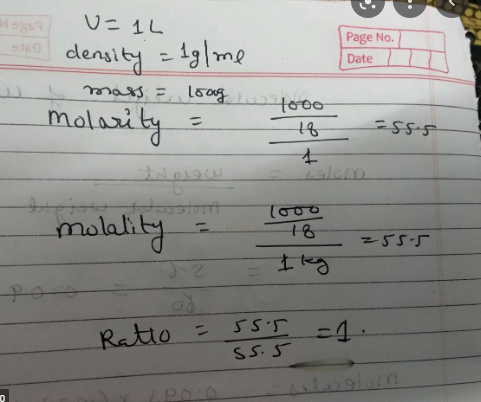 V = 1L
Page No.
density = 1g/ml
Date
mass = 1000g
molarity = 1000/18/1 = 55.5
molality = 1000/18/1 kg = 55.5
Ratio = 55.5/55.5 = 1.